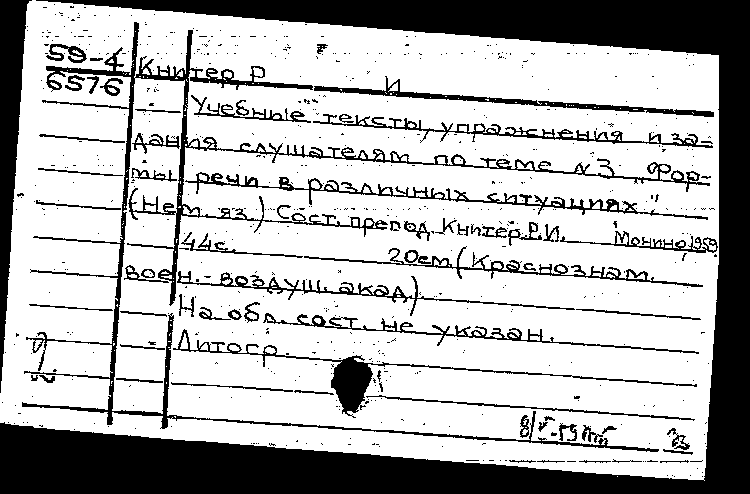 59-4
6576
Книтер, Р И
Учебные тексты, упражнения и за-
дания слушателям по теме N3 „Фор-
мы речи в различных ситуациях".
(Нем. яз.) Сост. препод. Книтер Р.И. Монино, 1959
44с. 20см (Краснознам.
воен.-воздуш. акад.)
На обл. сост. не указан.
Литогр.